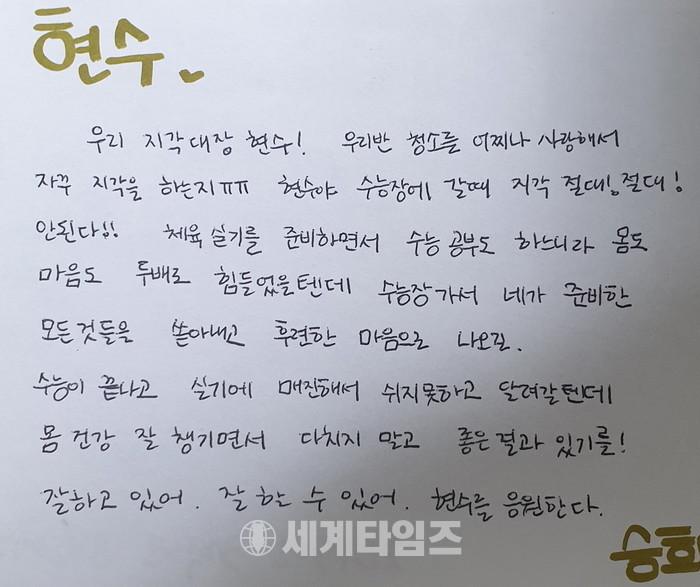 현수
우리 지각대장 현수! 우리반 청소를 어찌나 사랑해서
자꾸 지각을 하는지ㅠㅠ 현수야 수능장에 갈때 지각 절대!, 절대!
안된다!! 체육 실기를 준비하면서 수능 공부도 하느니라 몸도
마음도 두배로 힘들었을텐데 수능장 가서 네가 준비한
모든것들을 쏟아내고 후련한 마음으로 나오길.
수능이 끝나고 실기에 매진해서 쉬지못하고 달려갈텐데
몸 건강 잘 챙기면서 다치지 말고 좋은 결과 있기를!
잘하고 있어. 잘 할 수 있어. 현수를 응원한다.
세계타임즈